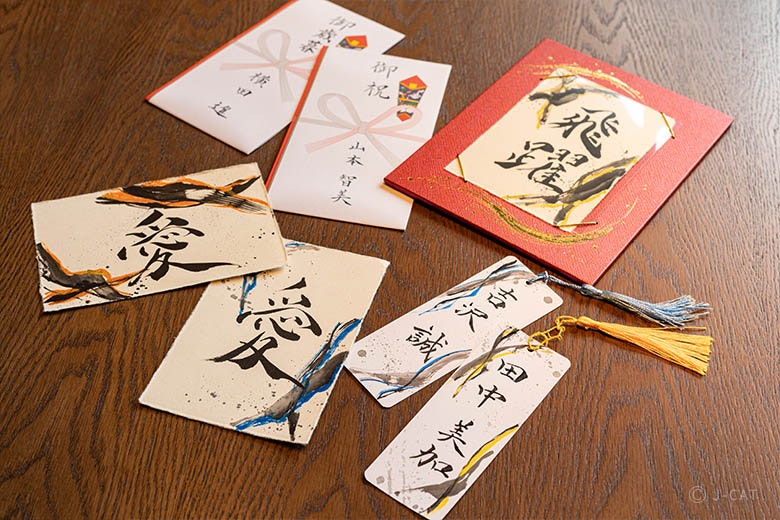 御歳暮
横田 遥
御祝
山本智美
飛躍
愛
愛
吉沢 誠
田中 美加
© J-CAT